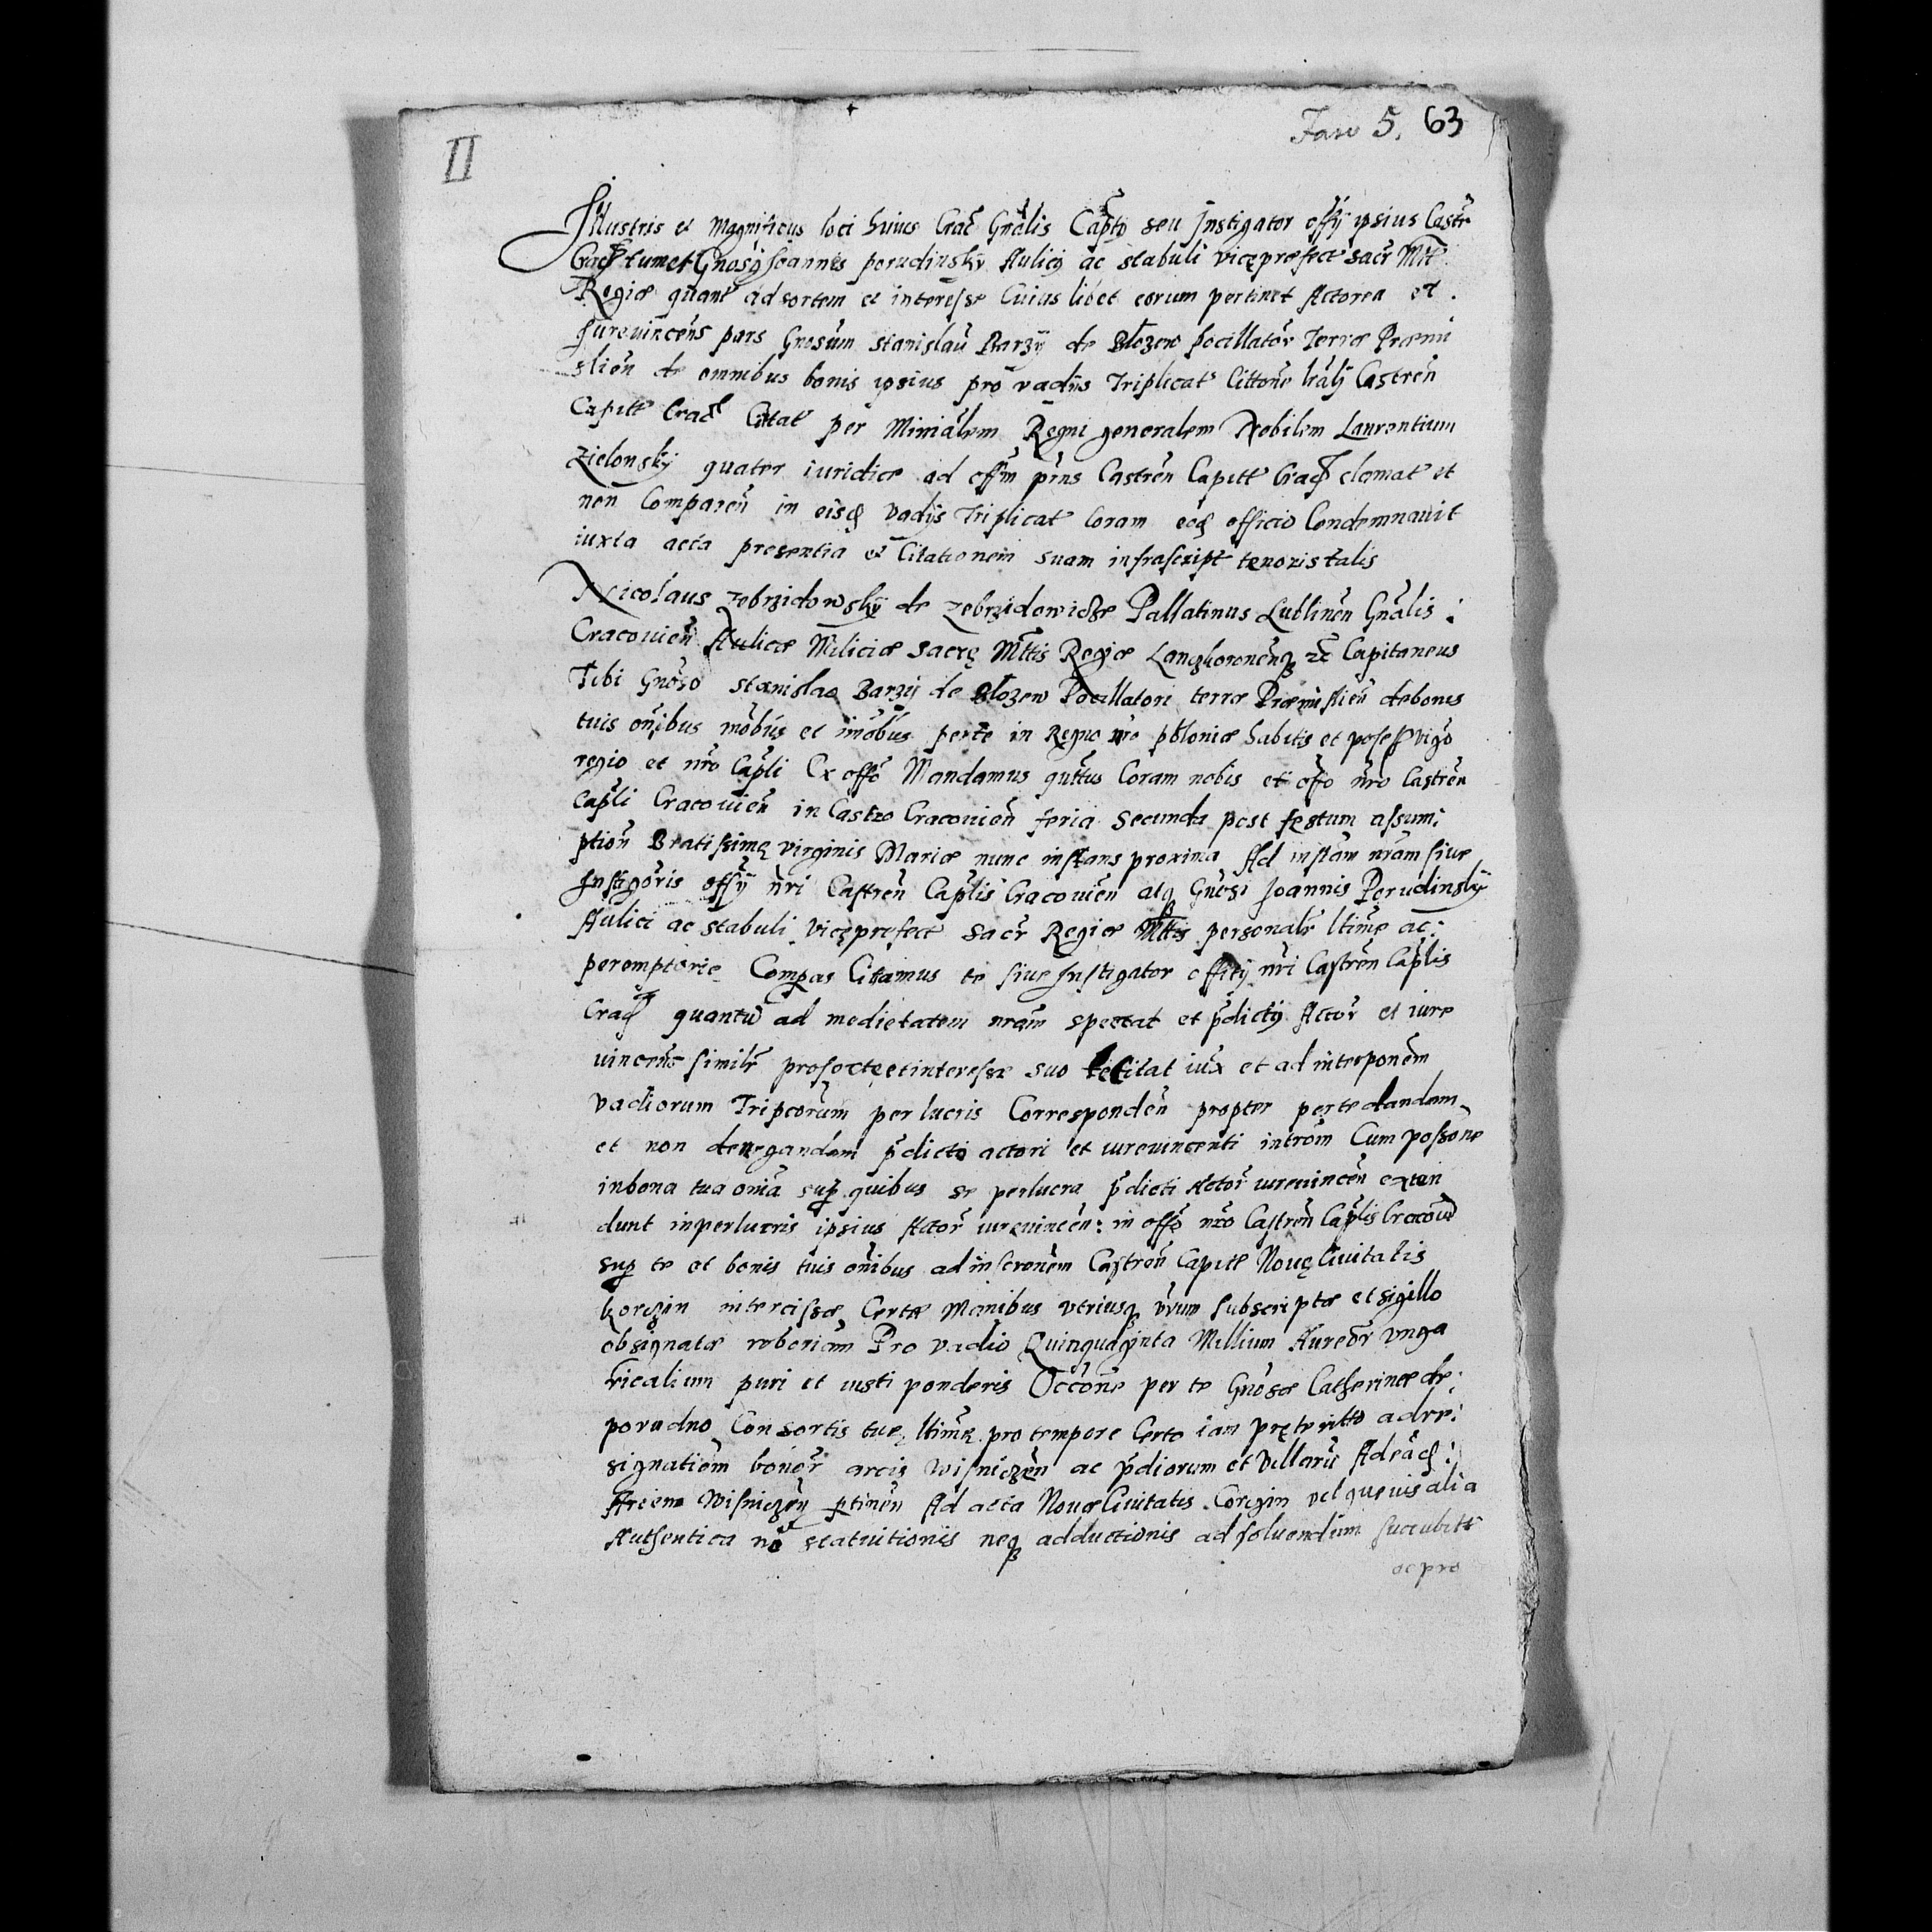 II
Fasc 5. 63
Illustris et Magnificus loci huius Crac Gnalis Capts seu Instigator offy ipsius Castr
Crac tum et Gnosy Joannes porudinsky Aulicy ac stabuli viceprefect sacr Mtt
Regiæ quant ad sortem et interesse Cuius libet eorum pertinet Actorea et
Jurevincens pars Gnosum Stanislau Barzy de Błozew pocillator Terræ Præmi
slien de omnibus bonis ipsius pro vadiis Triplicat Cittone Castren
Capitt Crac Citat per Minialem Regni generalem Nobilem Laurentium
Zielonsky quater iuridice ad offm prns Castren Capitt Crac clamat et
non Comparen in eisq vadijs Triplicat Coram eoq officio Condemnavit
iuxta acta presentia et Citationem suam infrascript tenoris talis
Nicolaus Zebrzidowsky de Zebrzidowicze Pallatinus Lublinen Gnalis:
Cracovien Aulicæ Miliciæ sacrę Mttis Regiæ Lanczkoronenq zc Capitaneus
Tibi Gnoso Stanislao Barzy de Błozew Pocillatori terræ Præmislien de bonis
tuis onibus mobus et imobus per te in Regno nro poloniæ habitis et posess vigo
regio et nro Capli Ex offo Mandamus quttus Coram nobis et offo nro Castren
Capli Cracovien in Castro Cracovien feria Secunda post festum assum:
ption Beatissimę virginis Mariæ nunc instans proxima Ad instam nram sive
Instigoris offy nri Castren Caplis Cracovien atq Gnosi Joannis Porudinsky
Aulici ac stabuli viceprefect Sacr Regiæ Mttis personalr ltime ac:
peremptorie Compas Citamus te sive Instigator officy nri Castren Caplis
Crac quantu ad medietatem nram spectat et pdicty Actor et iure
vincens similr pro sorte et interesse suo te Citat iux et ad interponem
vadiorum Tripcorum per lucris Corresponden propter per te dandam
et non denegandam pdicto actori et iurevincenti introm Cum possone
in bona tua onia sup quibus se perlucra pdicti Actor iurevincen exten
dunt in perlucris ipsius Actor iurevincen: in offo nro Castren Caplis Cracov
sup te et bonis tuis onibus ad inscronem Castren Capitt Novę Civitatis
Korczin intercissæ Certæ Manibus utriusq vrum subscriptæ et sigillo
obsignatæ roboriam Pro vadio Quinquaginta Millium Aureor Unga
ricalium puri et iusti ponderis Occone per te Gnosæ Catherinæ de:
porudno Consortis tuę ltimę pro tempore Certo iam pręteritto ad re:
signatiom bonor arcis Wisniczen ac pdiorum et Villaru Ad eaq:
Arcem Wisniczen ptinen Ad acta Novæ Civitatis Corczin vel quevis alia
Authentica no statuitionis neq adductionis ad solvendum succubitt
ac pro